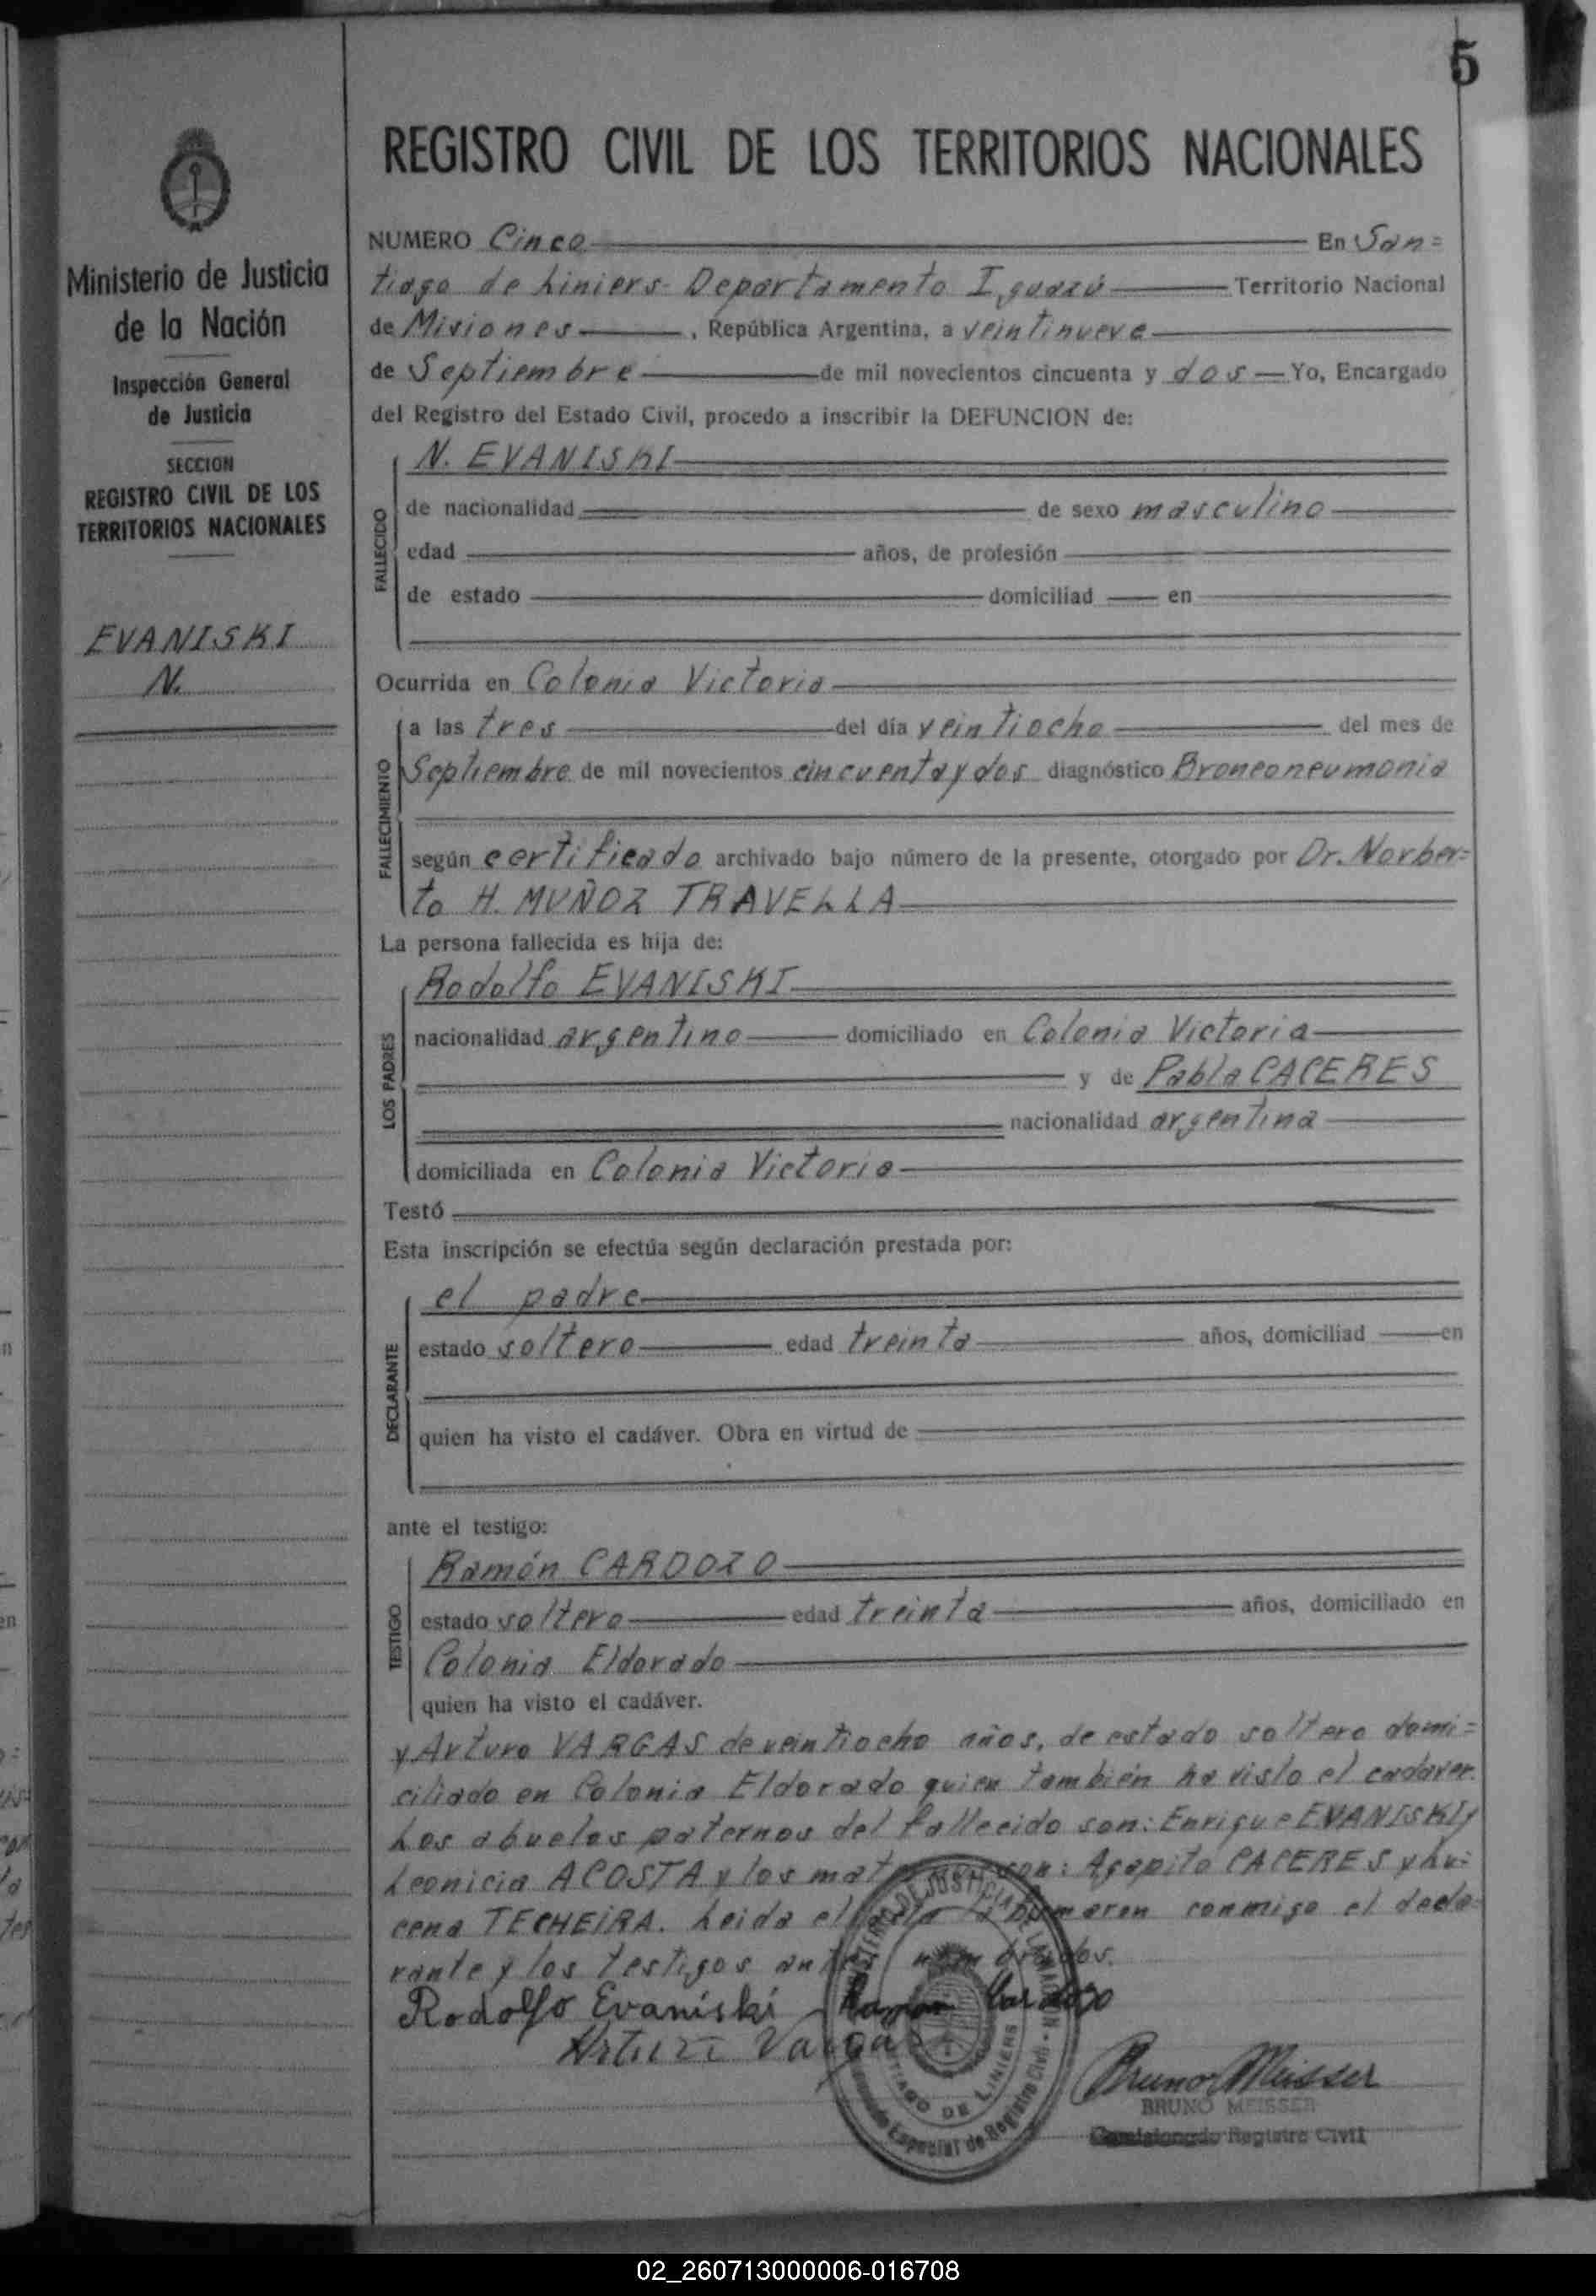 5
REGISTRO CIVIL DE LOS TERRITORIOS NACIONALES
Ministerio de Justicia
de la Nación
Inspección General
de Justicia
SECCION
REGISTRO CIVIL DE LOS
TERRITORIOS NACIONALES
EVANISKI
N.
NUMERO Cinco En San=
tiago de Liniers- Departamento Iguazú Territorio Nacional
de Misiones, República Argentina, a veintinueve
de Septiembre de mil novecientos cincuenta y dos Yo, Encargado
del Registro del Estado Civil, procedo a inscribir la DEFUNCION de:
FALLECIDO
N. EVANISKI
de nacionalidad de sexo masculino
edad años, de profesión
de estado domiciliad en
Ocurrida en Colonia Victoria
FALLECIMIENTO
a las tres del día veintiocho del mes de
Septiembre de mil novecientos cincuenta y dos diagnóstico Bronconeumonia
según certificado archivado bajo número de la presente, otorgado por Dr. Norber=
to H. MUÑOZ TRAVELLA
La persona fallecida es hija de:
LOS PADRES
Rodolfo EVANISKI
nacionalidad argentino domiciliado en Colonia Victoria
y de Pabla CACERES
nacionalidad argentina
domiciliada en Colonia Victoria
Testó
Esta inscripción se efectúa según declaración prestada por:
DECLARANTE
el padre
estado soltero edad treinta años, domiciliad en
quien ha visto el cadáver. Obra en virtud de
ante el testigo:
TESTIGO
Ramón CARDOZO
estado soltero edad treinta años, domiciliado en
Colonia Eldorado
quien ha visto el cadáver.
y Arturo VARGAS de veintiocho años, de estado soltero domi=
ciliado en Colonia Eldorado quien también ha visto el cadaver.
Los abuelos paternos del fallecido son: Enrique EVANISKI y
Leonicia ACOSTA y los maternos son: Agapito CACERES y Lu=
cena TECHEIRA. Leida el acta la firmaron conmigo el decla=
rante y los testigos antes nombrados.
Rodolfo Evaniski Ramon Cardozo
Arturo Vargas
MINISTERIO DE JUSTICIA DE LA NACION
SANTIAGO DE LINIERS
Especial de Registro Civil
Bruno Meisser
BRUNO MEISSER
Comisionado Registro Civil
02_260713000006-016708